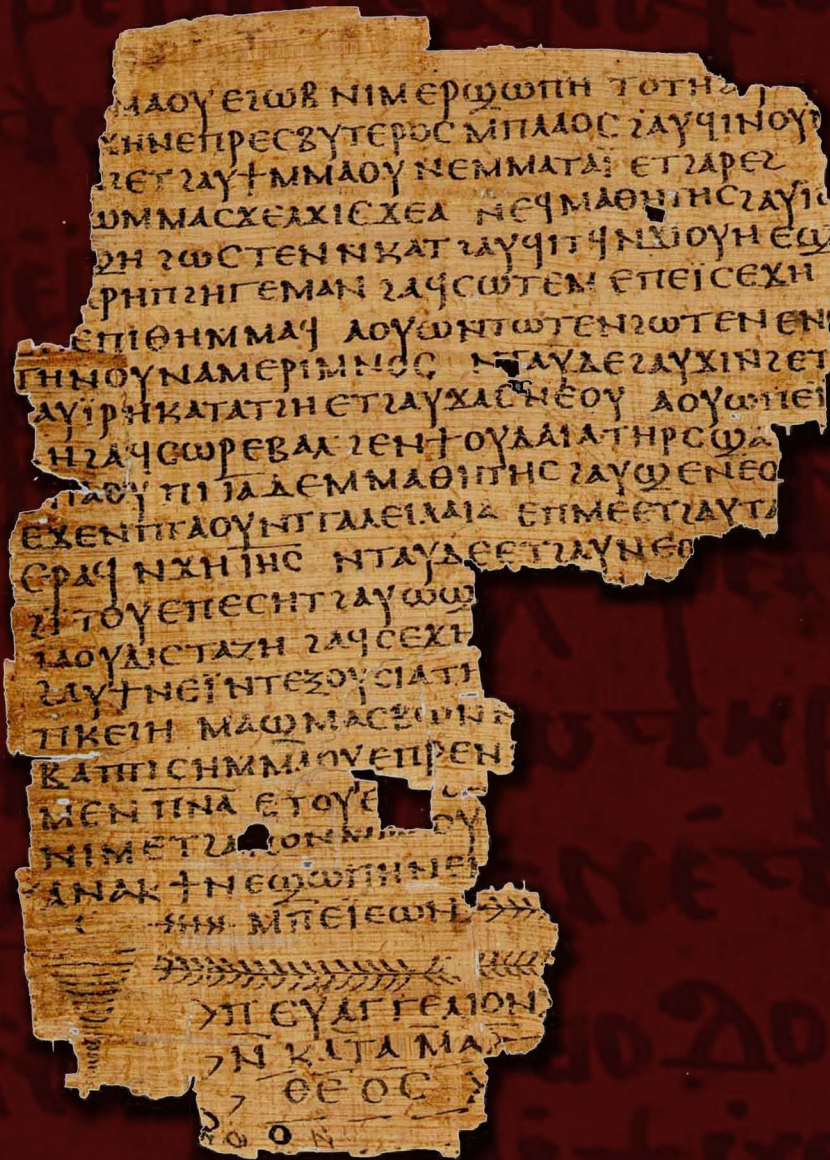 ⲙⲁⲟⲩ ⲉϩⲱⲃ ⲛⲓⲙ ⲉⲣϣⲱⲡⲏ ⲧⲟⲧⲏ
ⲭⲏⲛⲉⲡⲣⲉⲥⲃⲩⲧⲉⲣⲟⲥ ⲙⲡⲗⲁⲟⲥ ϩⲁⲩϥⲓⲛⲟⲩ
ϩⲉⲧ ϩⲁⲩϯⲙⲙⲁⲟⲩ ⲛⲉⲙⲙⲁⲧⲁⲓ̈ ⲉⲧϩⲁⲣⲉϩ
ⲱⲙⲙⲁⲥϫⲉⲁϫⲓⲥϫⲉⲁ ⲛⲉϥⲙⲁⲑⲏⲧⲏⲥ ϩⲁⲩⲓ
ϩⲏ ϩⲱⲥⲧⲉⲛⲛⲕⲁⲧ ϩⲁⲩϥⲓⲧϥ ⲛϫⲓⲟⲩⲏ ⲉϣ
ⲣⲏⲡϩⲏⲅⲉⲙⲁⲛ ϩⲁϥⲥⲱⲧⲉⲙ ⲉⲡⲉⲓ̈ⲥⲉϫⲏ
ⲉⲡⲓⲑⲏⲙⲙⲁϥ ⲁⲟⲩⲱⲛⲧⲱⲧⲉⲛϩⲱⲧⲉⲛ ⲉⲛ
ⲧⲏⲛⲟⲩ ⲛⲁⲙⲉⲣⲓⲙⲛⲟⲥ ⲛⲧⲁⲩⲇⲉ ϩⲁⲩϫⲓⲛϩⲉⲧ
ⲁⲩⲓ̈ⲣⲏ ⲕⲁⲧⲁⲧϩⲏ ⲉⲧϩⲁⲩϫⲁⲥ ⲛⲉⲟⲩ ⲁⲟⲩⲱ ⲡⲉⲓ̈
ⲏ ϩⲁϥⲥⲱⲣ ⲉⲃⲁⲗ ϩⲉⲛϯⲟⲩⲇⲁⲓⲁ ⲧⲏⲣⲥ ϣⲁ
ⲡⲁⲟⲩ ⲡⲓ ⲓ̅ⲁ̅ ⲇⲉ ⲙⲙⲁⲑⲓⲧⲏⲥ ϩⲁⲩϣⲉⲛⲉⲟ
ⲉϫⲉⲛ ⲡⲧⲁⲟⲩ ⲛⲧⲅⲁⲗⲉⲓⲗⲁⲓⲁ ⲉⲡⲙⲉ ⲉⲧϩⲁⲩⲧⲁ
ⲉⲣⲁϥ ⲛϫⲏ ⲓ̅ⲏ̅ⲥ̅ ⲛⲧⲁⲩⲇⲉ ⲉⲧϩⲁⲩⲛⲉⲟ
ϩⲓⲧⲟⲩ ⲉⲡⲉⲥⲏⲧ ϩⲁⲩⲱϣ
ϩⲁⲟⲩⲇⲓⲥⲧⲁⲍⲏ ϩⲁϥⲥⲉϫⲏ
ϩⲁⲩϯ ⲛⲉⲓ̈ ⲛⲧⲉⲝⲟⲩⲥⲓⲁ ⲧⲏ
ⲡⲕⲉϩⲏ ⲙⲁϣ ⲙⲁⲥⲃⲱ ⲛ
ⲃⲁⲡⲧⲓⲥⲏ ⲙⲙⲁⲟⲩ ⲉⲡⲣⲉⲛ
ⲙⲉⲛ ⲡ̅ⲛ̅ⲁ̅ ⲉⲧⲟⲩⲉ
ⲛⲓⲙ ⲉⲧϩⲁ ⲟⲛ ⲟⲩ
ⲁⲛⲁⲕ ϯⲛⲉϣⲱⲡⲏ ⲛⲉⲙ
ⲙⲡⲉⲓ̈ⲉⲱⲛ
ⲡⲉⲩⲁⲅⲅⲉⲗⲓⲟⲛ
ⲛⲕⲁⲧⲁ ⲙⲁ
ⲑⲉⲟⲥ